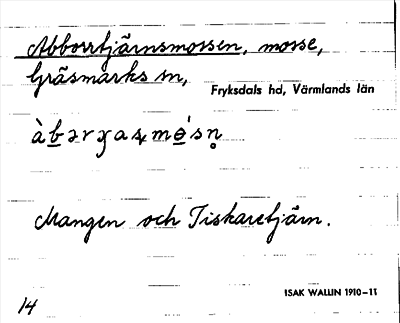 Abborrtjärnsmossen, mosse,
Gräsmarks sn,
Fryksdals hd, Värmlands län
Mangen och Tiskaretjärn.
ISAK WALLIN 1910-11
14